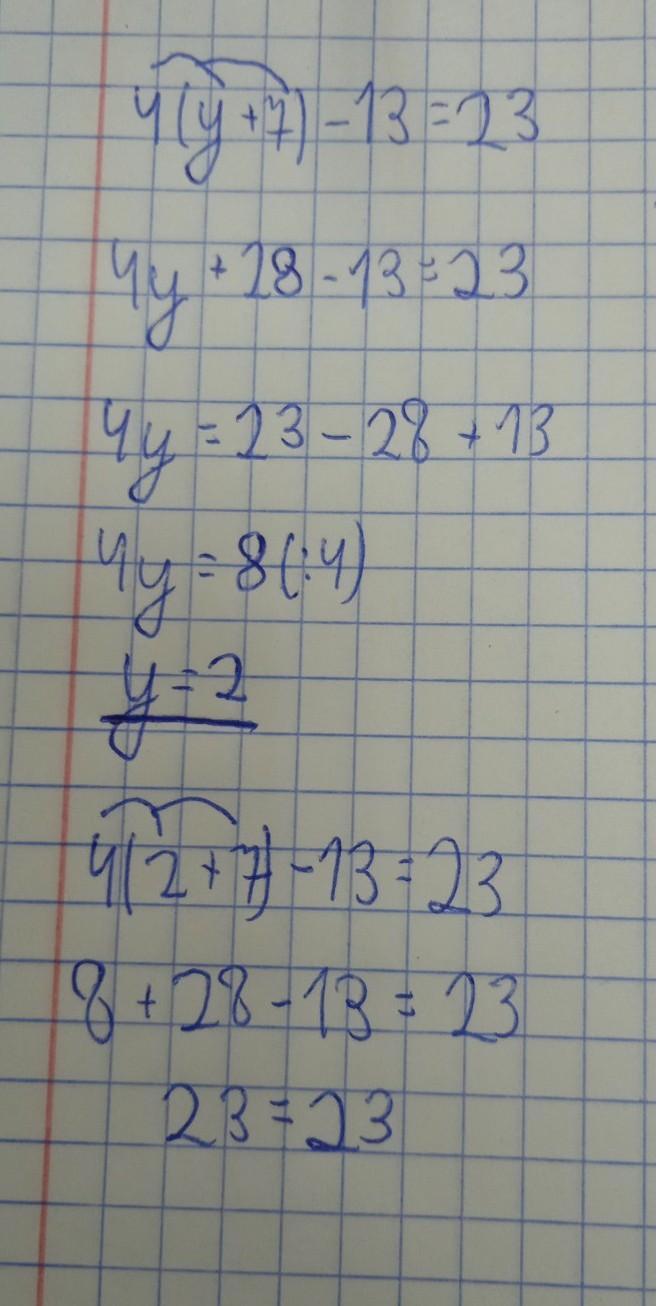 4(y+7)-13=23
4y+28-13=23
4y=23-28+13
4y=8(:4)
y=2
4(2+7)-13=23
8+28-13=23
23=23